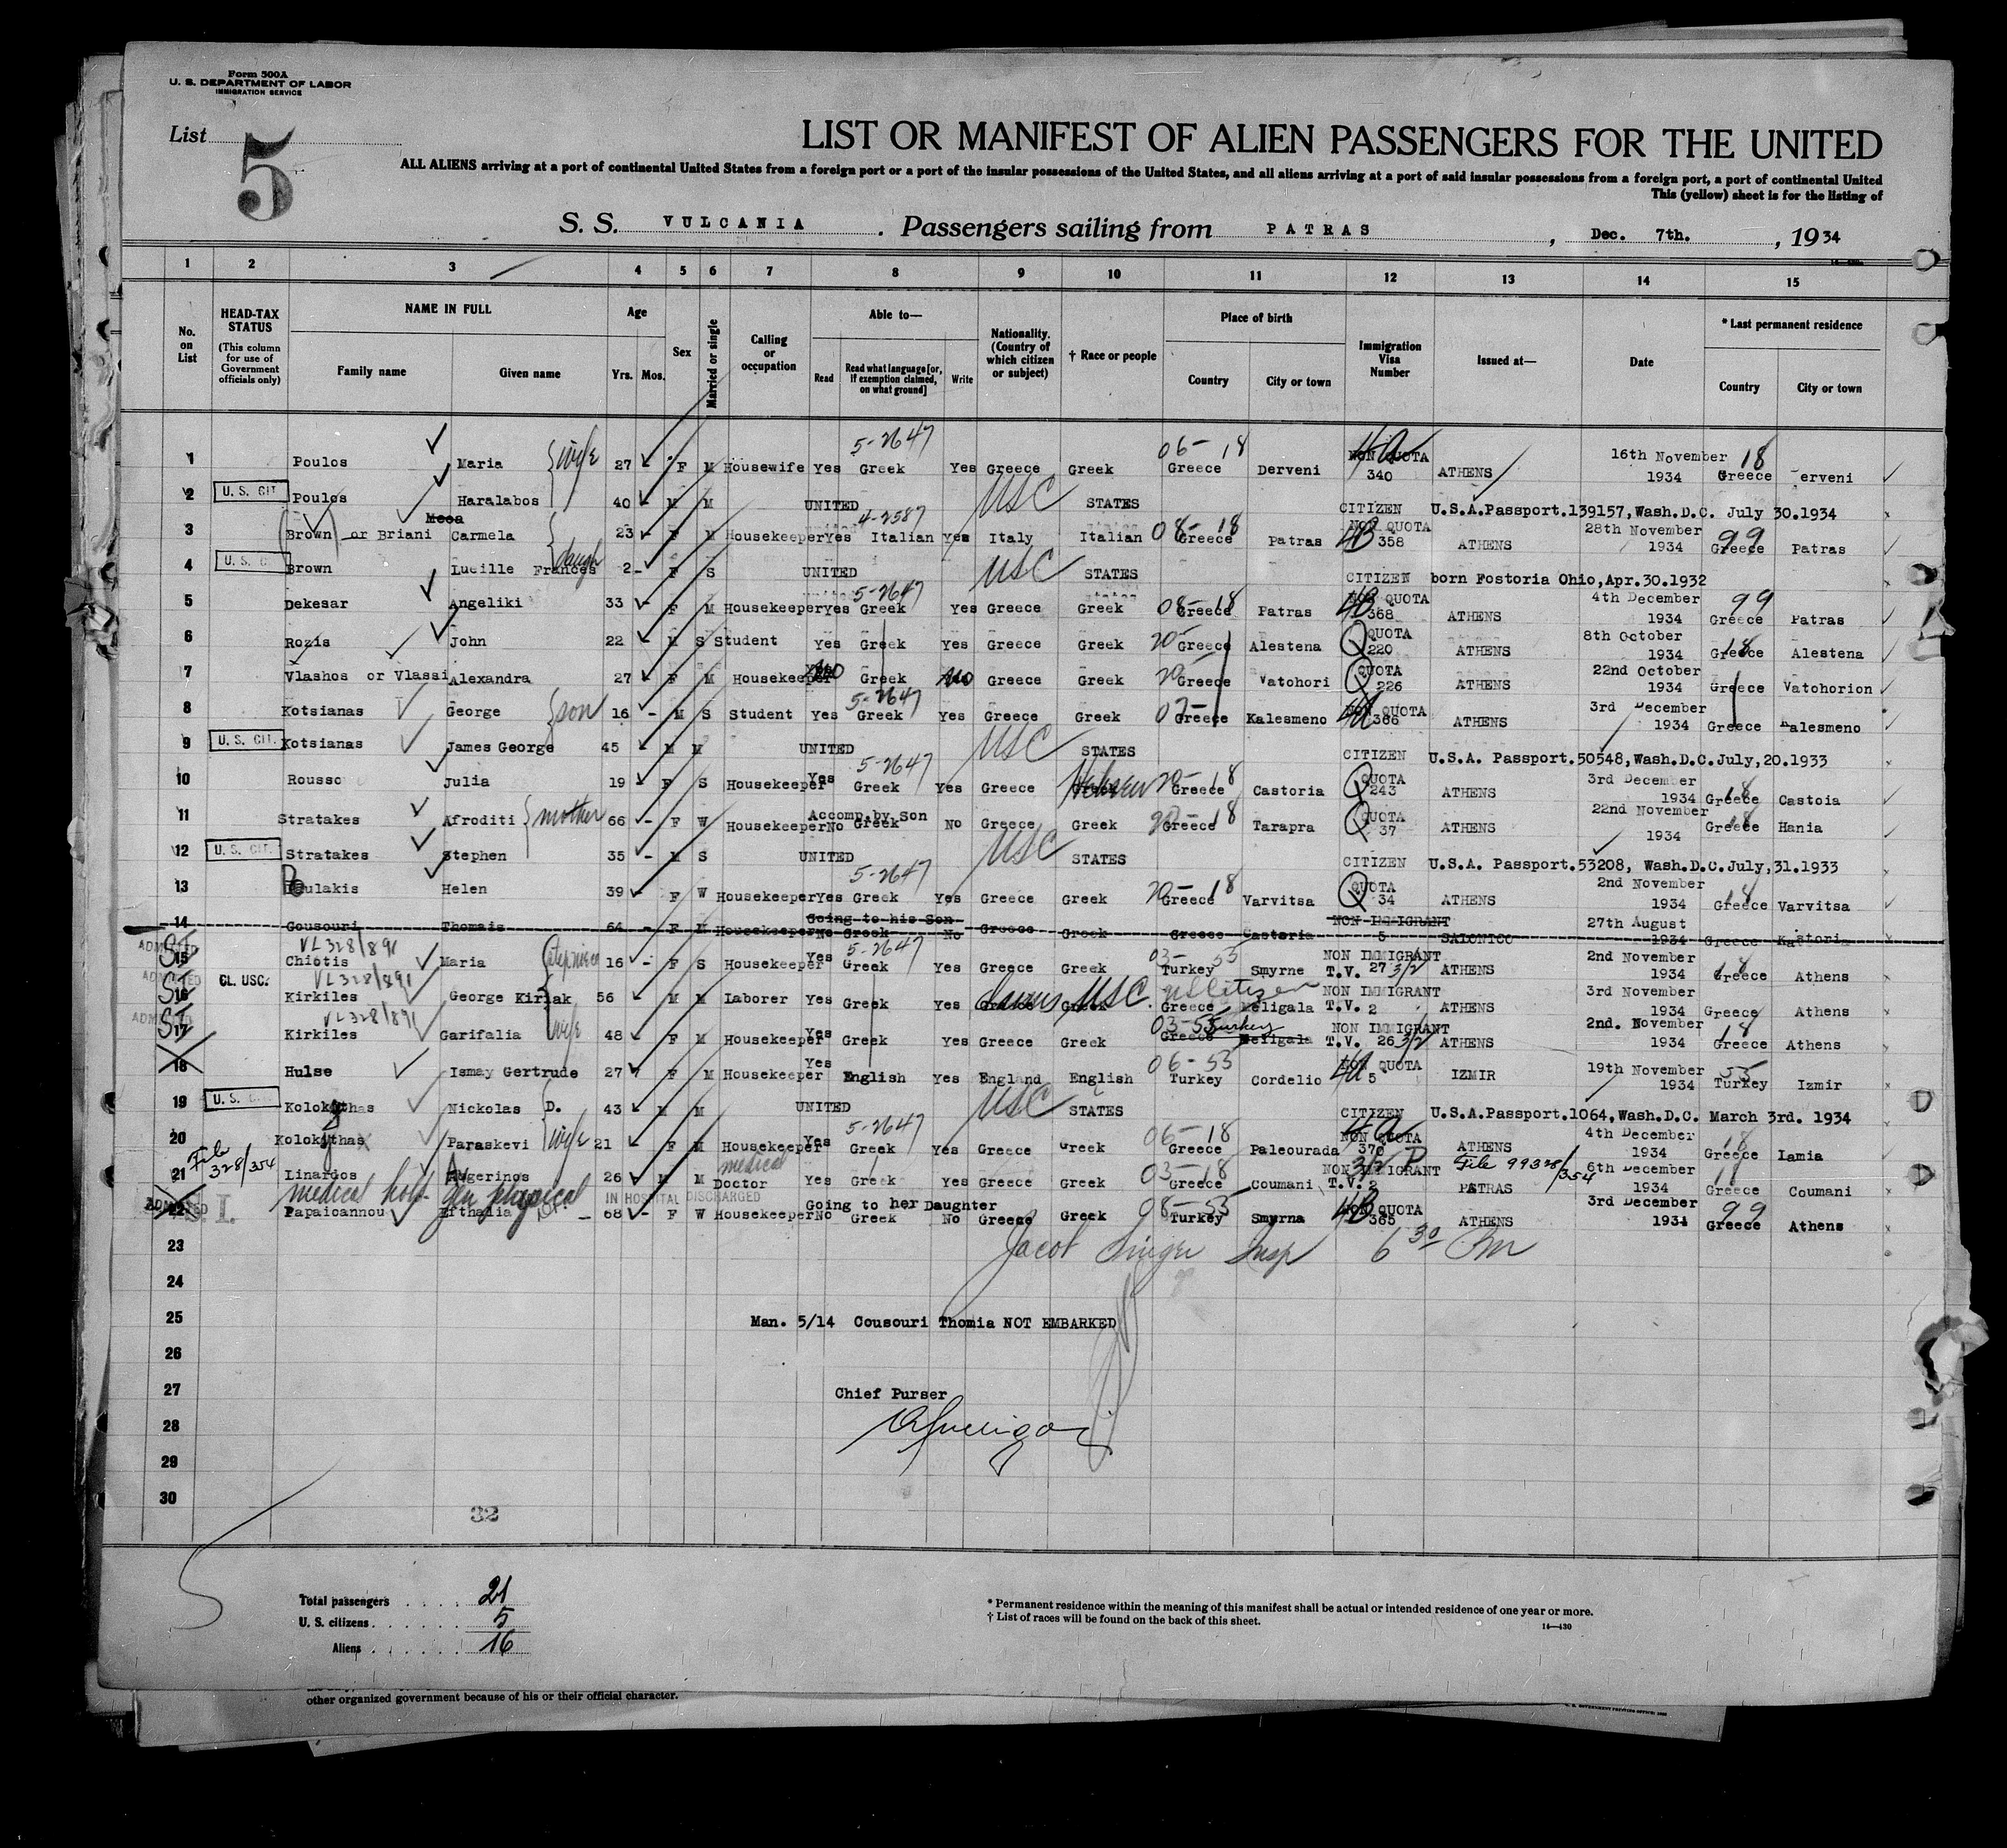 Form 500A
U. S. DEPARTMENT OF LABOR
IMMIGRATION SERVICE
List 5
LIST OR MANIFEST OF ALIEN PASSENGERS FOR THE UNITED
ALL ALIENS arriving at a port of continental United States from a foreign port or a port of the insular possessions of the United States, and all aliens arriving at a port of said insular possessions from a foreign port, a port of continental United
This (yellow) sheet is for the listing of
S. S. VULCANIA . Passengers sailing from PATRAS , Dec. 7th. , 1934
1 2 3 4 5 6 7 8 9 10 11 12 13 14 15
No. on List
HEAD-TAX STATUS (This column for use of Government officials only)
NAME IN FULL Family name Given name
Age Yrs. Mos.
Sex
Married or single
Calling or occupation
Able to— Read Read what language [or, if exemption claimed, on what ground] Write
Nationality. (Country of which citizen or subject)
† Race or people
Place of birth Country City or town
Immigration Visa Number
Issued at—
Date
* Last permanent residence Country City or town
1 Poulos Maria wife 27 F M Housewife Yes Greek 5-2647 Yes Greece Greek 06-18 Greece Derveni 4a NON QUOTA 340 ATHENS 16th November 1934 18 Greece erveni
2 U. S. CIT Poulos Haralabos 40 M M UNITED USC STATES CITIZEN U.S.A.Passport.139157,Wash.D.C. July 30.1934
3 Brown or Briani Carmela 23 F M Housekeeper Yes 4-2587 Italian Yes Italy Italian 08-18 Greece Patras 4B NON QUOTA 358 ATHENS 28th November 1934 99 Greece Patras
4 U. S. C Brown Lucille Frances daugh 2 F S UNITED USC STATES CITIZEN born Fostoria Ohio,Apr.30.1932
5 Dekesar Angeliki 33 - F M Housekeeper Yes 5-2647 Greek Yes Greece Greek 08-18 Greece Patras 4B NON QUOTA 368 ATHENS 4th December 1934 99 Greece Patras
6 Rozis John 22 M S Student Yes Greek Yes Greece Greek 20- Greece Alestena Q QUOTA 220 ATHENS 8th October 1934 18 Greece Alestena
7 Vlashos or Vlassi Alexandra 27 F M Housekeeper No Greek No Greece Greek 20- Greece Vatohori Q QUOTA 226 ATHENS 22nd October 1934 Greece Vatohorion
8 Kotsianas George son 16 - M S Student Yes 5-2647 Greek Yes Greece Greek 07- Greece Kalesmeno 4a NON QUOTA 366 ATHENS 3rd December 1934 Greece Kalesmeno
9 U. S. CIT. Kotsianas James George 45 M M UNITED USC STATES CITIZEN U.S.A. Passport.50548,Wash.D.C.July,20.1933
10 Rousso Julia 19 F S Housekeeper Yes 5-2647 Greek Yes Greece Hebrew 20-18 Greece Castoria Q QUOTA 243 ATHENS 3rd December 1934 18 Greece Castoia
11 Stratakes Afroditi mother 66 - F W Housekeeper No Accomp.by Son Greek No Greece Greek 20-18 Greece Tarapra Q QUOTA 37 ATHENS 22nd November 1934 18 Greece Hania
12 U. S. CIT. Stratakes Stephen 35 - M S UNITED USC STATES CITIZEN U.S.A. Passport.53208, Wash.D.C.July,31.1933
13 Poulakis Helen 39 - F W Housekeeper Yes 5-2647 Greek Yes Greece Greek 20-18 Greece Varvitsa Q QUOTA 34 ATHENS 2nd November 1934 18 Greece Varvitsa
14 Gousouri Thomais 64 - F M Housekeeper No Going to his Son Greek No Greece Greek Greece Castoria NON IMMIGRANT 5 SALONICO 27th August 1934 Greece Kastoria
ADMITTED SI 15 VL328/891 Chiotis Maria stepniece 16 - F S Housekeeper Yes 5-2647 Greek Yes Greece Greek 03-55 Turkey Smyrne NON IMMIGRANT T.V. 27 3/2 ATHENS 2nd November 1934 18 Greece Athens
ADMITTED SI 16 CL. USC. VL328/891 Kirkiles George Kiriak 56 - M M Laborer Yes Greek Yes Greece Greek USC US Citizen Greece Meligala NON IMMIGRANT T.V. 2 ATHENS 3rd November 1934 Greece Athens
ADMITTED SI 17 VL328/891 Kirkiles Garifalia wife 48 - F M Housekeeper Yes Greek Yes Greece Greek 03-55 Turkey Greece Meligala NON IMMIGRANT T.V. 26 3/2 ATHENS 2nd. November 1934 18 Greece Athens
18 Hulse Ismay Gertrude 27 F M Housekeeper Yes English Yes England English 06-53 Turkey Cordelio 4a NON QUOTA 5 IZMIR 19th November 1934 55 Turkey Izmir
19 U. S. Kolokythas Nickolas D. 43 M M UNITED USC STATES CITIZEN U.S.A.Passport.1064,Wash.D.C. March 3rd. 1934
20 Kolokythas Paraskevi wife 21 F M Housekeeper Yes 5-2647 Greek Yes Greece Greek 06-18 Greece Paleourada 4a NON QUOTA 370 ATHENS 4th December 1934 18 Greece Lamia
File 328/354 21 Linardos Augerinos 26 M M medical Doctor Yes Greek Yes Greece Greek 03-18 Greece Coumani 3/2 NON IMMIGRANT T.V. 2 File 99328/354 PATRAS 6th December 1934 18 Greece Coumani
medical hold - physical IN HOSPITAL DISCHARGED
ADMITTED S.I. 22 Papaioannou Efthalia - 68 - F W Housekeeper No Going to her Daughter Greek No Greece Greek 08-55 Turkey Smyrna 4B NON QUOTA 365 ATHENS 3rd December 1934 99 Greece Athens
23 Jacob Singer Insp 6 30 Pm
24
25 Man. 5/14 Cousouri Thomia NOT EMBARKED
26
27 Chief Purser
28
29
30
32
Total passengers . . . . 21
U. S. citizens . . . . . . 5
Aliens . . . . . . 16
* Permanent residence within the meaning of this manifest shall be actual or intended residence of one year or more.
† List of races will be found on the back of this sheet.
14—430
other organized government because of his or their official character.